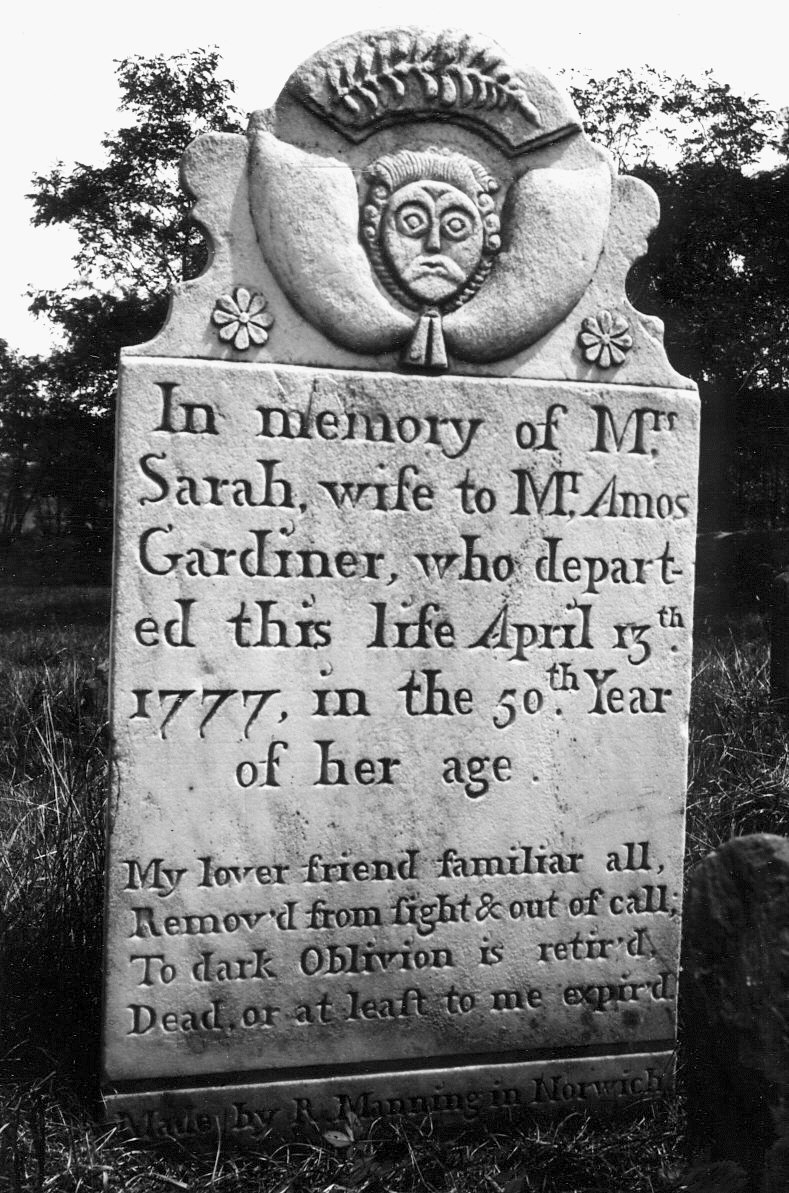 In memory of Mrs.
Sarah, wife to Mr. Amos
Gardiner, who depart-
ed this life April 13th.
1777, in the 50th. Year
of her age.
My lover friend familiar all,
Remov'd from ſight & out of call;
To dark Oblivion is retir'd,
Dead, or at leaſt to me expir'd.
Made by R. Manning in Norwich